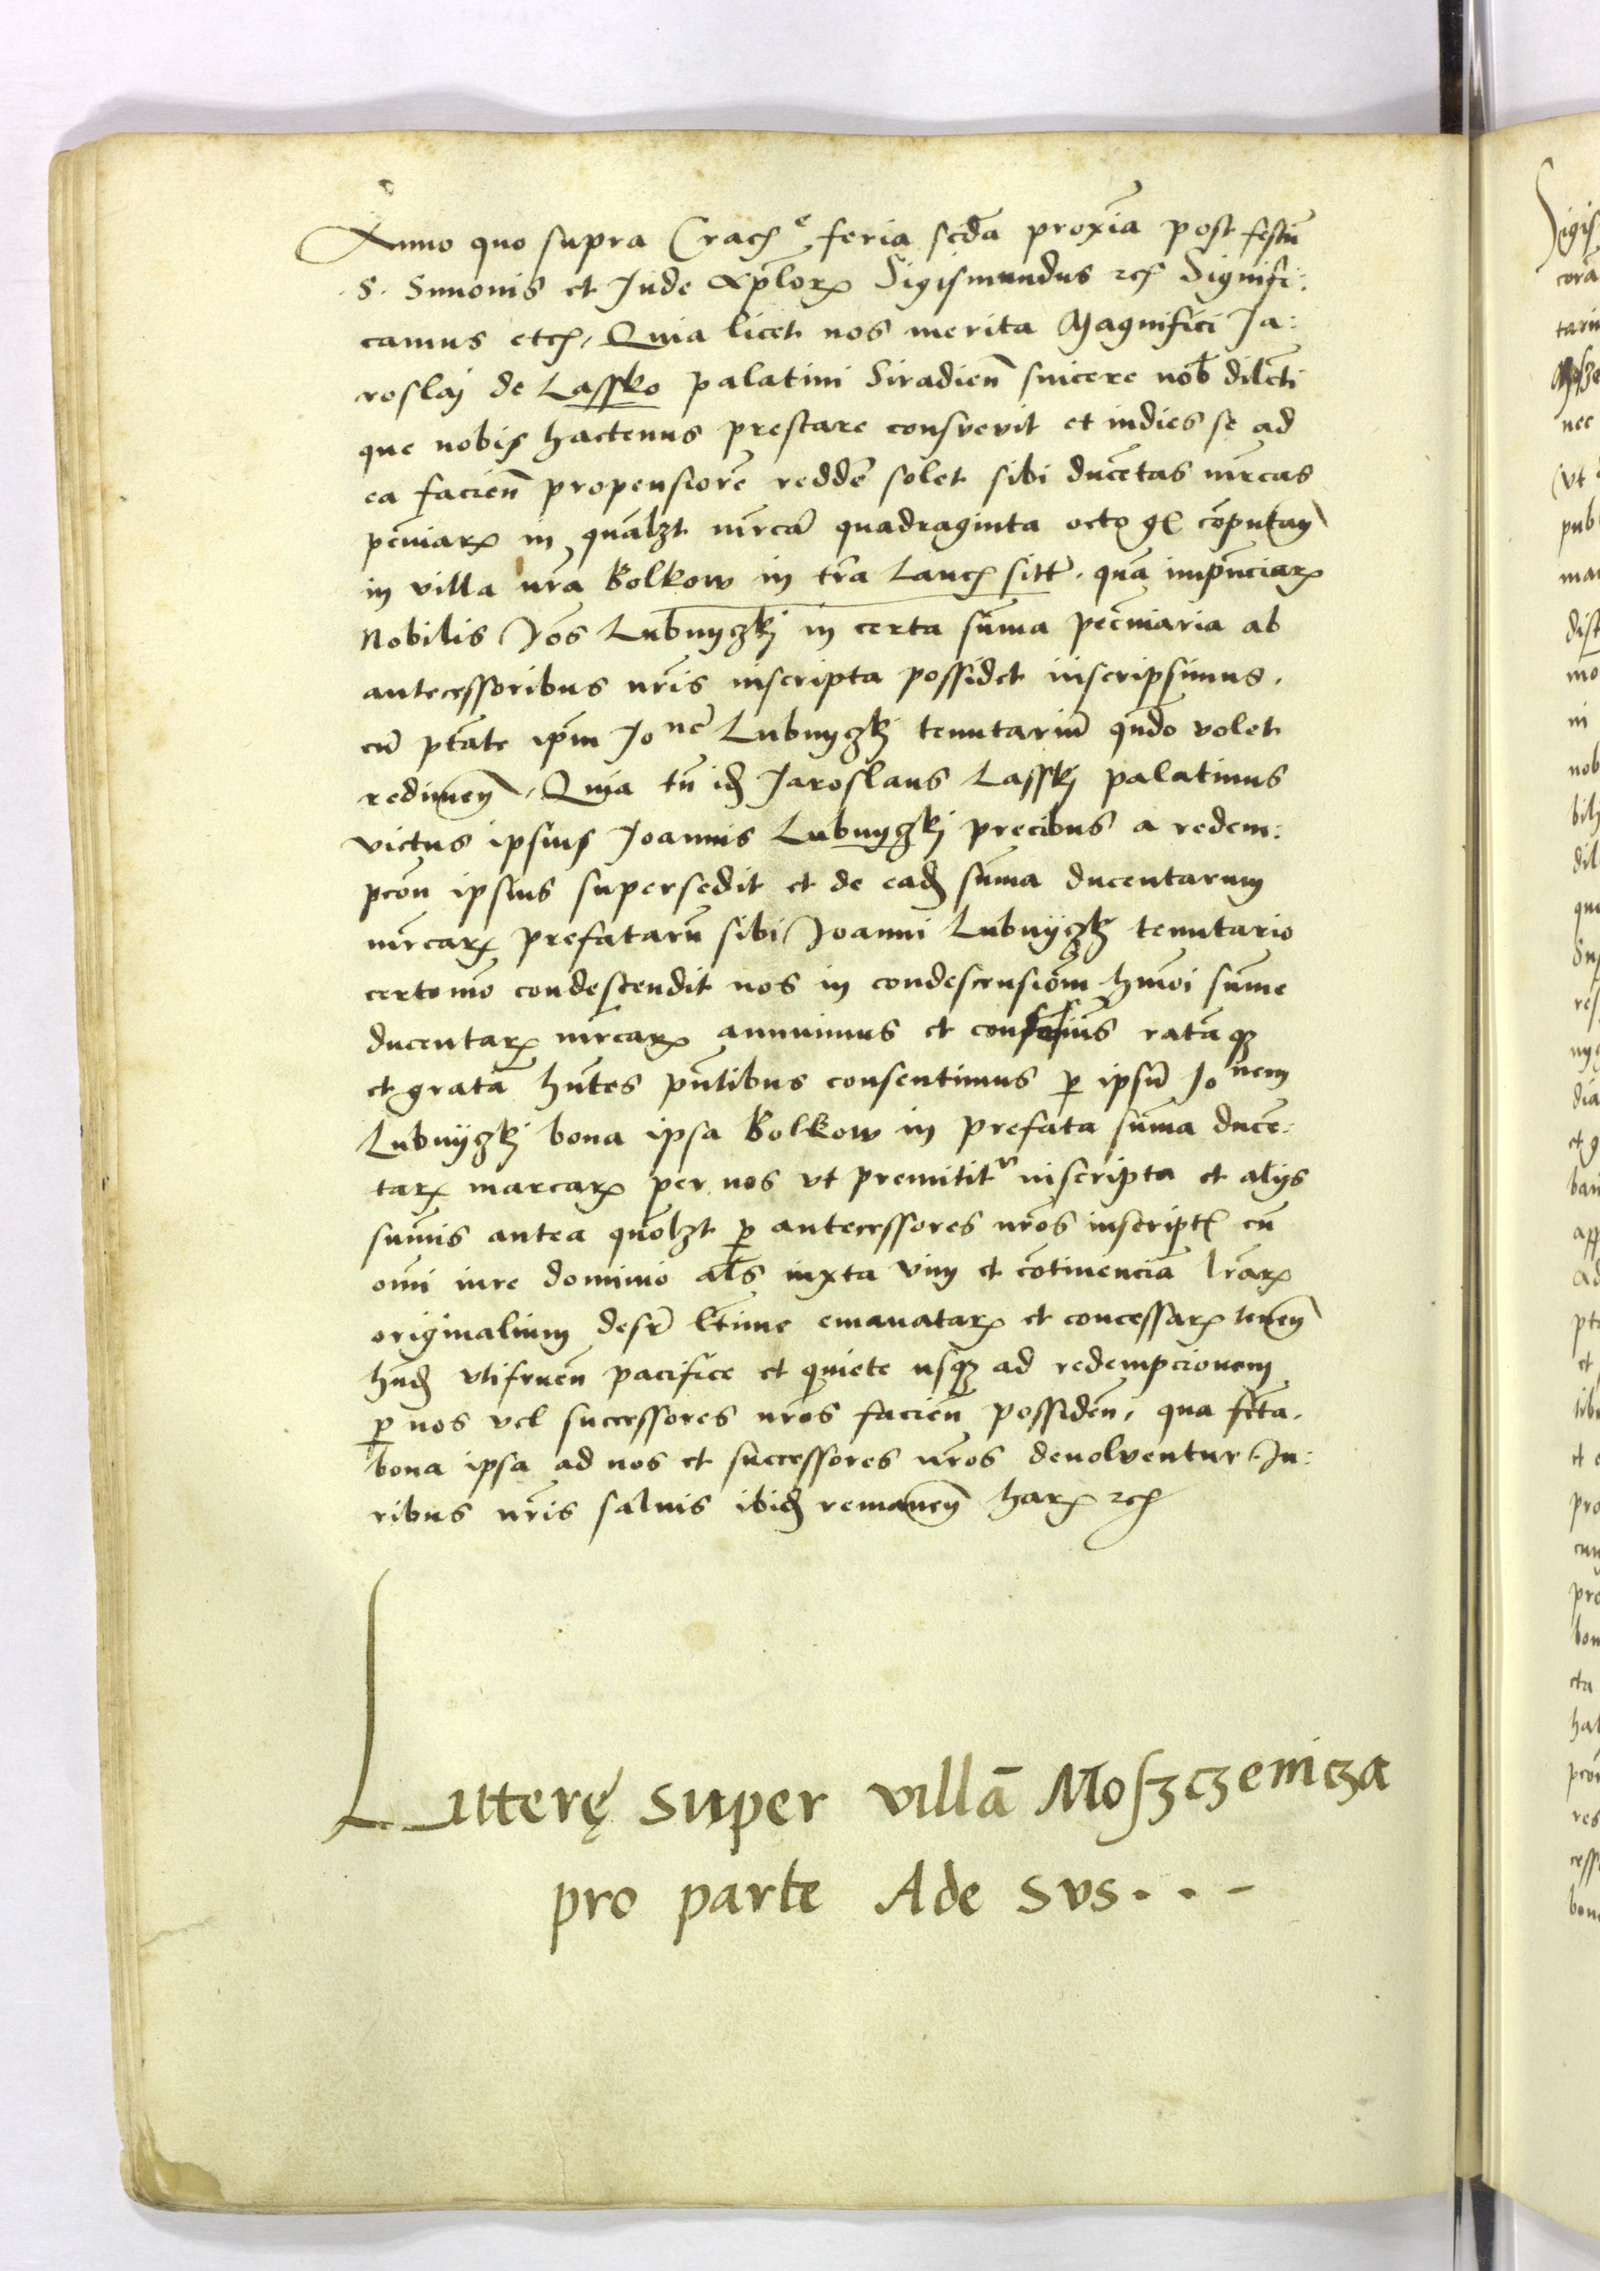 Anno quo supra Crac͡ę feria scđa proxīa post festū
S. Simonis et Jude Apl̄orꝝ Sigismundus ꝛc̄ Signifi:
camus etc̄, Quia licet nos merita Magnifici Ja:
roslaj de Lassko palatini Siradien̄ sincere nob̄ dilcti
que nobis hactenus prestare consvevit et indies se ad
ea facien̄ propensiorē reddē solet sibi ducētas mrcas
pecuniarꝝ in qual̄ʒt mrcā quadraginta octo gͬ cōputan̄
in villa nr̄a Bolkow in tr̄a Lanc̄ sitt̄. quā inpn̄ciarꝝ
Nobilis Joēs Lubnyczkj in certa sūma pecūniaria ab
antecessoribus nr̄is inscripta possidet inscripsimus.
cū ptāte ip̄m Jonē Lubnyczkj tenutariū qn̄do volet
redimen̄, Quia tn̄ idē Jaroslaus Lasskj palatinus
victus ipsius Joannis Lubnyczkj precibus a redem:
pcōn ipsius supersedit et de eadē sūma ducentarum
mrcarꝝ prefatarū sibi Joanni Lubnyczkj tenutario
certomō condescendit nos in condescensionēm hmōi sūme
ducentarꝝ mrcarꝝ annuimus et ratāqʒ
et gratā hn̄tes pn̄tibus consentimus ꝑ ipsū Jonem
Lubnyczkj bona ipsa Bolkow in prefata sūma ducē:
tarꝝ marcarꝝ per nos vt premititͬ inscripta et alijs
sūmis antea quōlʒt ꝑ antecessores nr̄os inscript̄ cū
omī iure dominio al̄s iuxta vim et cōtinenciā lr̄arꝝ
originalium desr̄ ltīme emanatarꝝ et concessarꝝ tenen̄
hn̄d vtifruen̄ pacifice et quiete usqʒ ad redempcionem
ꝑ nos vel successores nr̄os facien̄ possiden̄, qua fctā.
bona ipsa ad nos et successores nr̄os devolventur. Ju:
ribus nr̄is salvis ibidē remanen̄ harꝝ ꝛc̄
Litterę super villā Moszczenicza
pro parte Ade svs...-